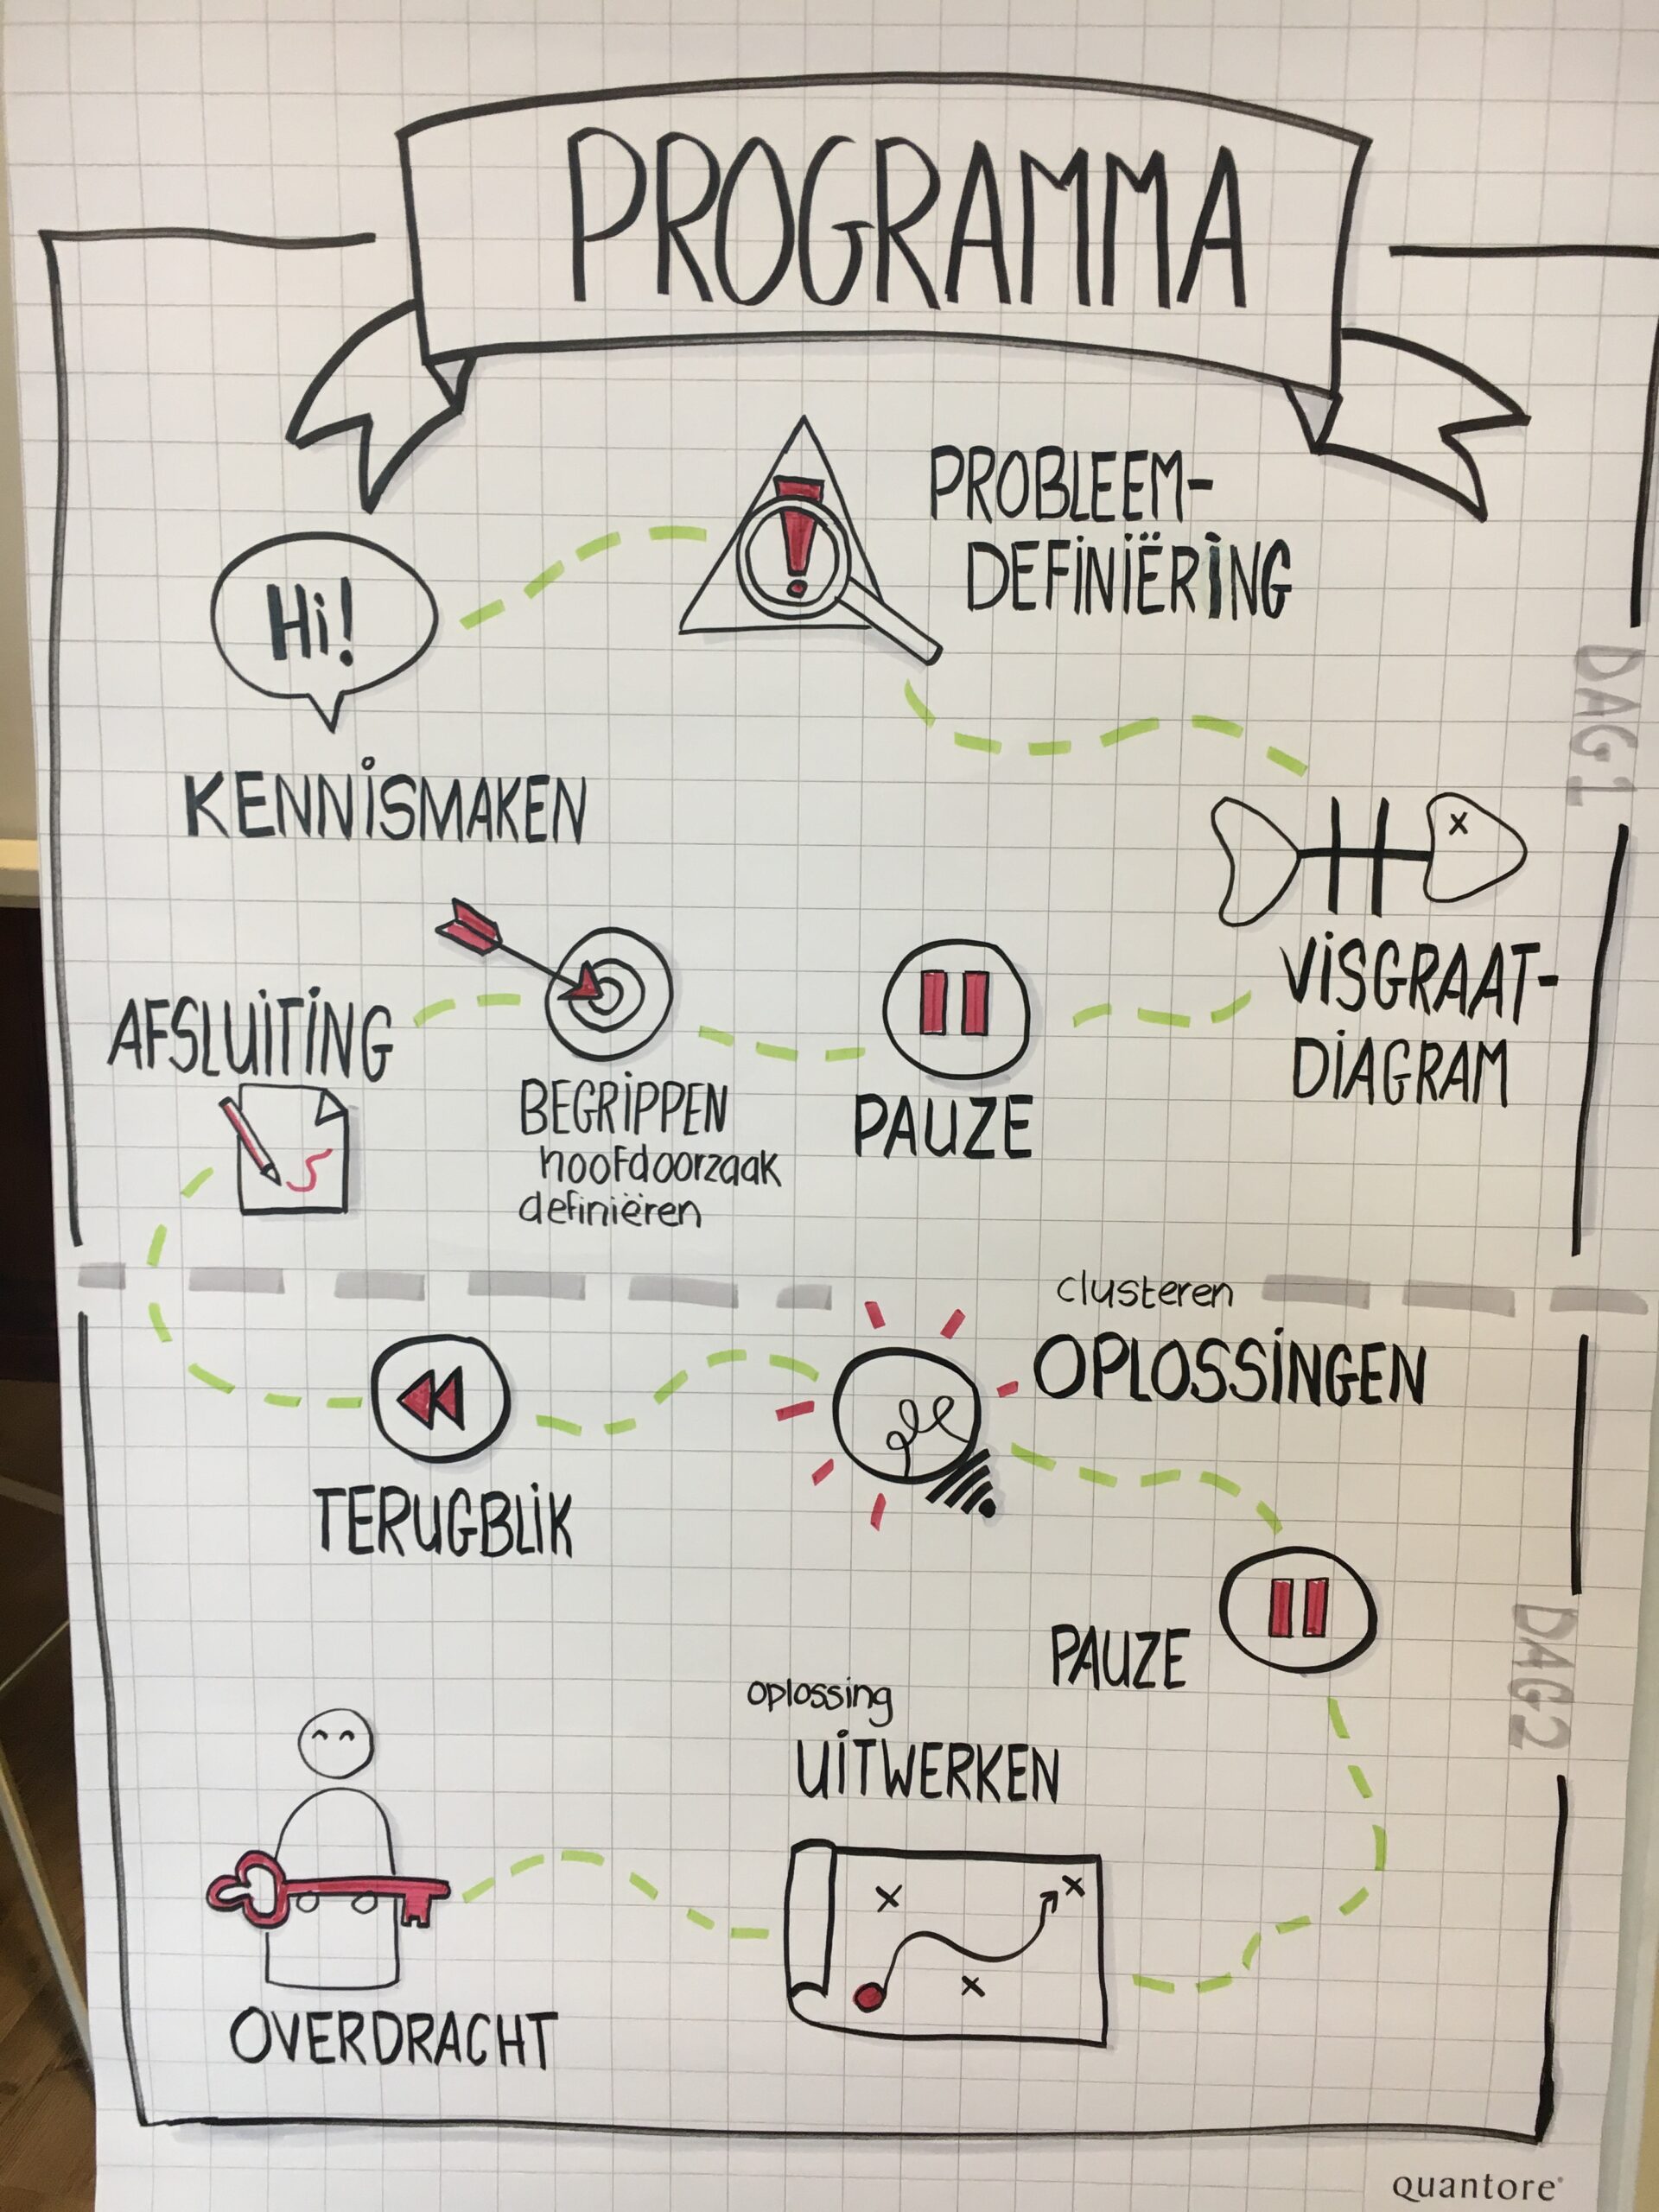 PROGRAMMA
Hi!
KENNISMAKEN
PROBLEEM-
DEFINIËRING
DAG 1
VISGRAAT-
DIAGRAM
PAUZE
BEGRIPPEN
hoofdoorzaak
definiëren
AFSLUITING
TERUGBLIK
clusteren
OPLOSSINGEN
PAUZE
DAG 2
oplossing
UITWERKEN
OVERDRACHT
quantore®